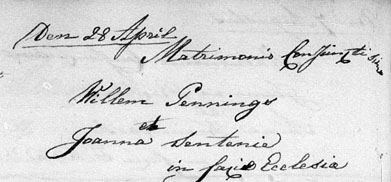 Den 28 April
Matrimonio Conjuncti Sunt
Willem Pennings
et
Joanna Sentenie
in facie Ecclesiæ